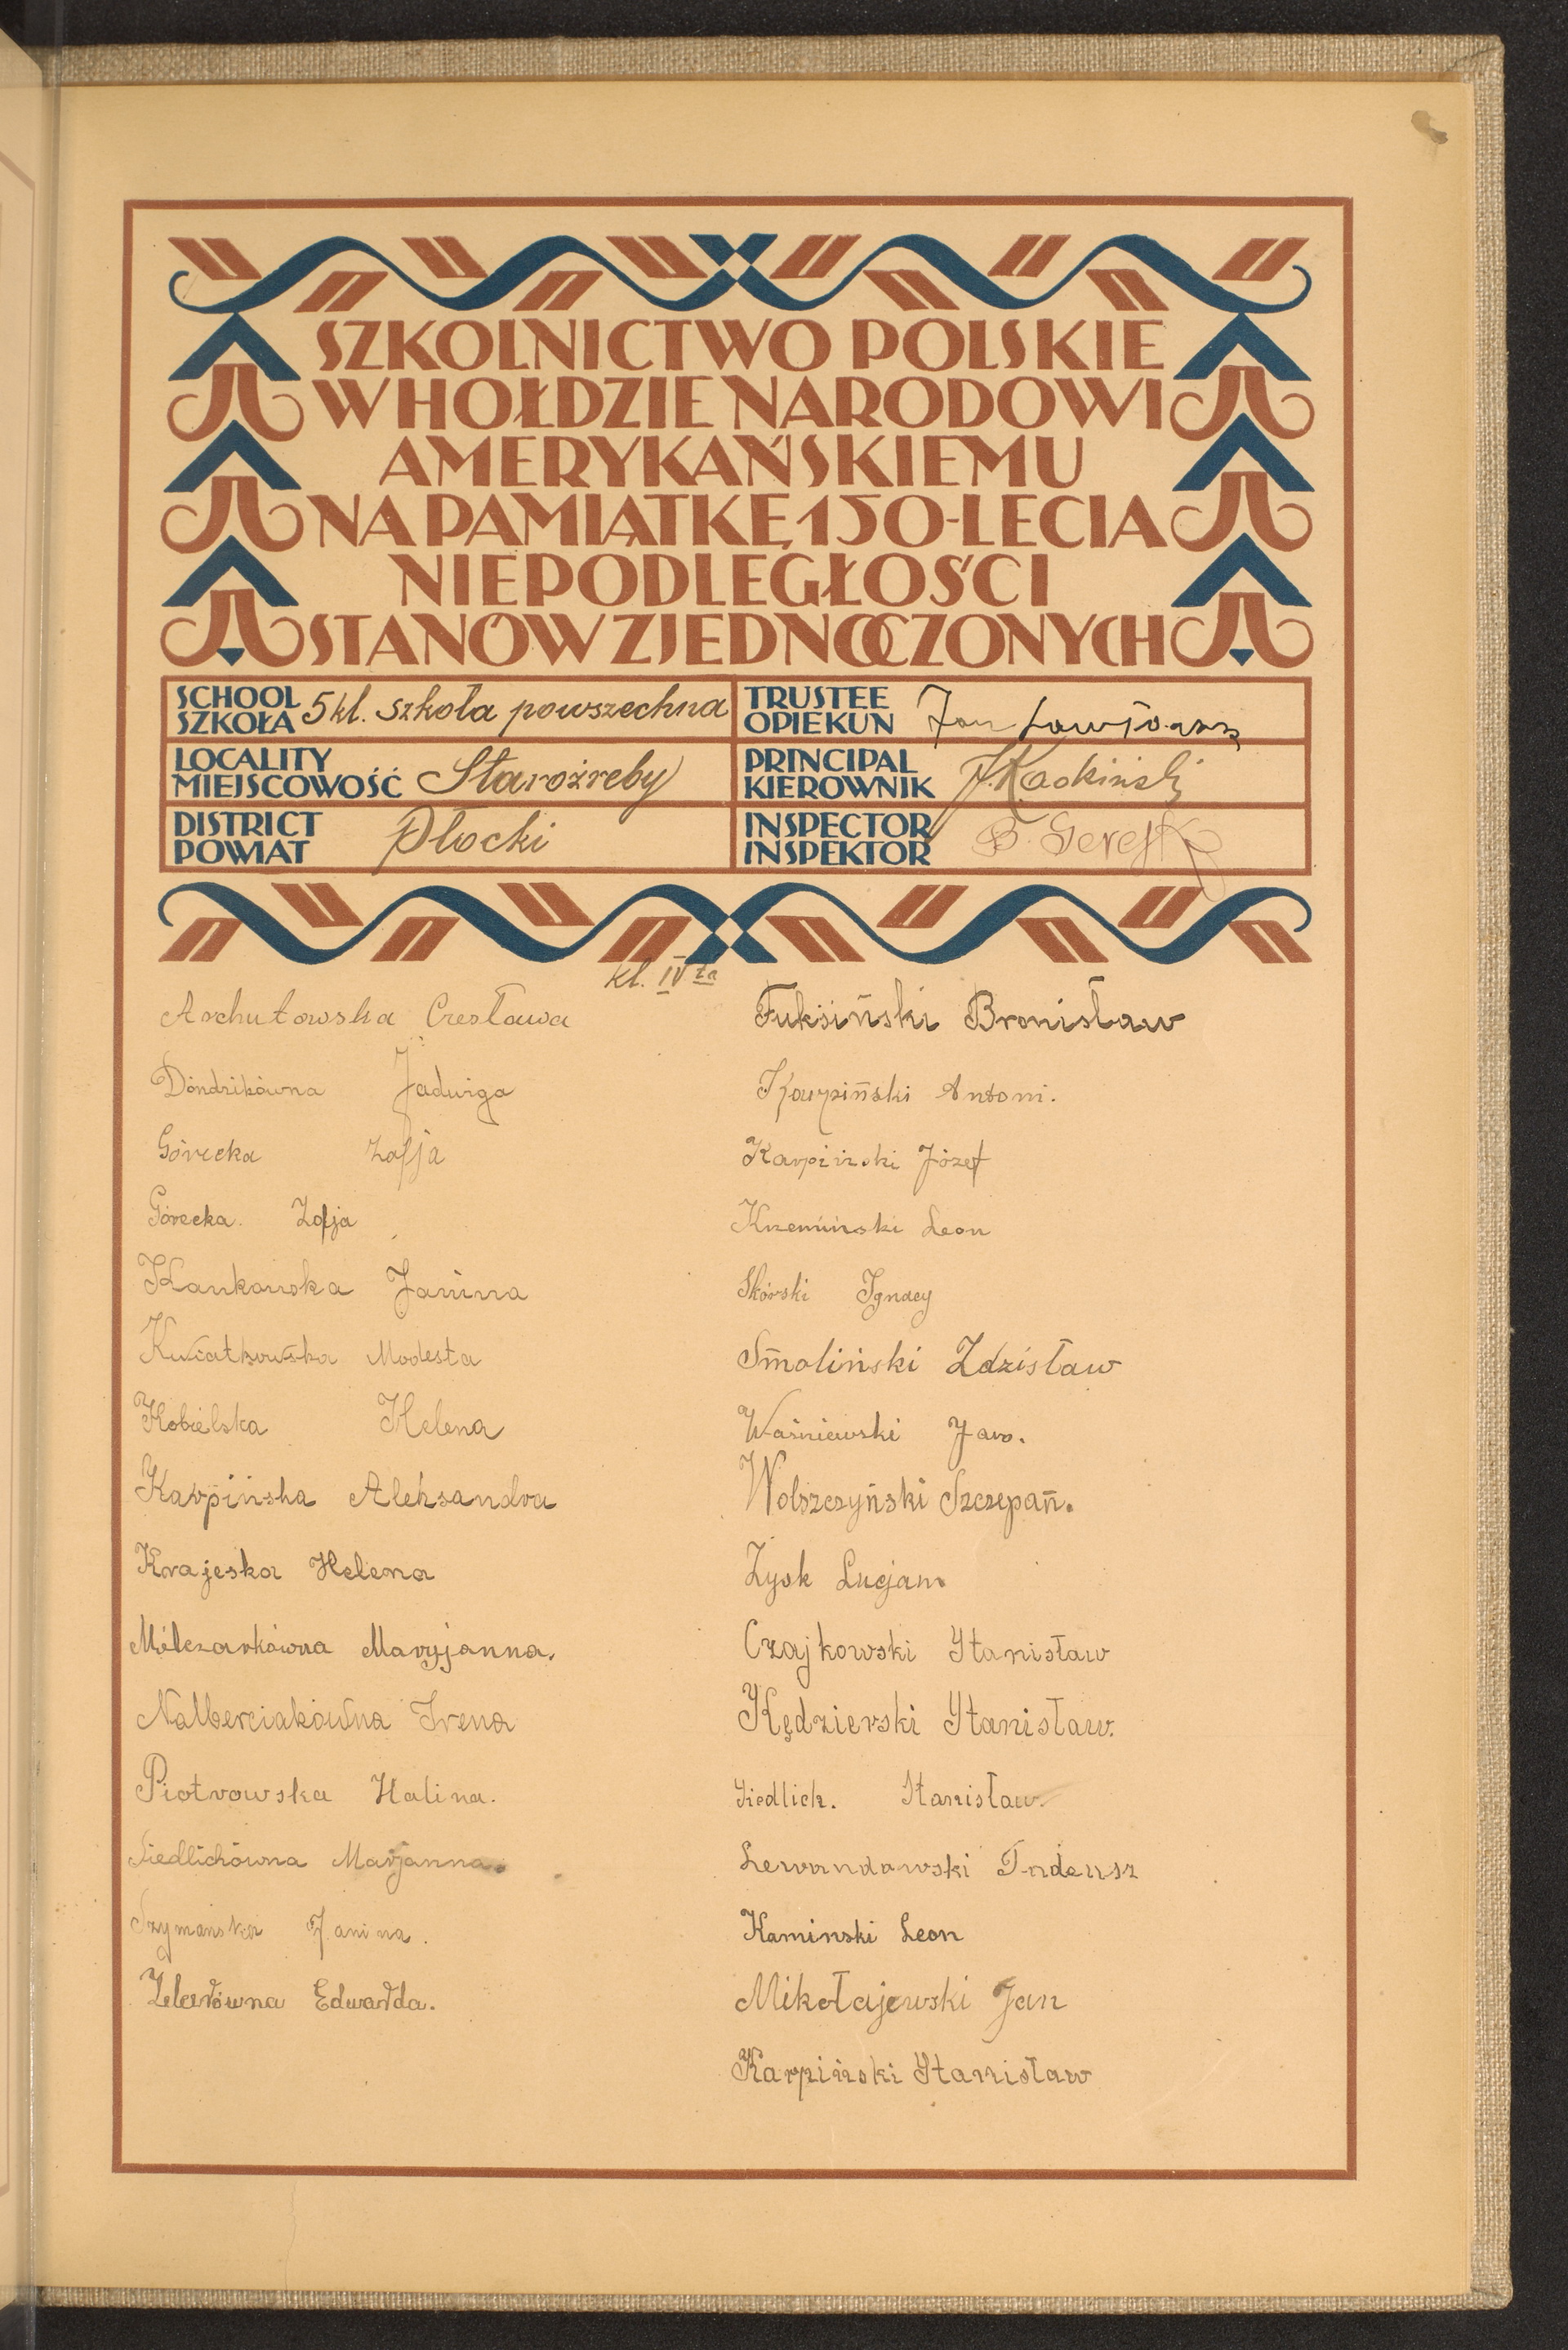 SZKOLNICTWO POLSKIE
W HOŁDZIE NARODOWI
AMERYKAŃSKIEMU
NA PAMIĄTKĘ 150-LECIA
NIEPODLEGŁOŚCI
STANÓW ZJEDNOCZONYCH
SCHOOL
SZKOŁA 5 kl. szkoła powszechna
TRUSTEE
OPIEKUN Jan
LOCALITY
MIEJSCOWOŚĆ Staroźreby
PRINCIPAL
KIEROWNIK
DISTRICT
POWIAT Płocki
INSPECTOR
INSPEKTOR B.
kl. IV ta
Archutowska Czesława
Dondzikówna Jadwiga
Górecka Zofja
Górecka. Zofja
Kankowska Janina
Kwiatkowska Modesta
Kobielska Helena
Karpińska Aleksandra
Krajeska Helena
Mólczarkówna Maryjanna.
Nalberciakówna Irena
Piotrowska Halina.
Siedlichówna Marjanna.
Szymańska Janina.
Zelerówna Edwarda.
Fuksiński Bronisław
Karpiński Antoni.
Karpiński Józef
Krzemiński Leon
Skórski Ignacy
Smoliński Zdzisław
Waśniewski Jan.
Wolszczyński Szczepan.
Zysk Lucjan
Czajkowski Stanisław
Kędzierski Stanisław.
Siedlich. Stanisław.
Lewandowski Tadeusz
Kaminski Leon
Mikołajewski Jan
Karpiński Stanisław